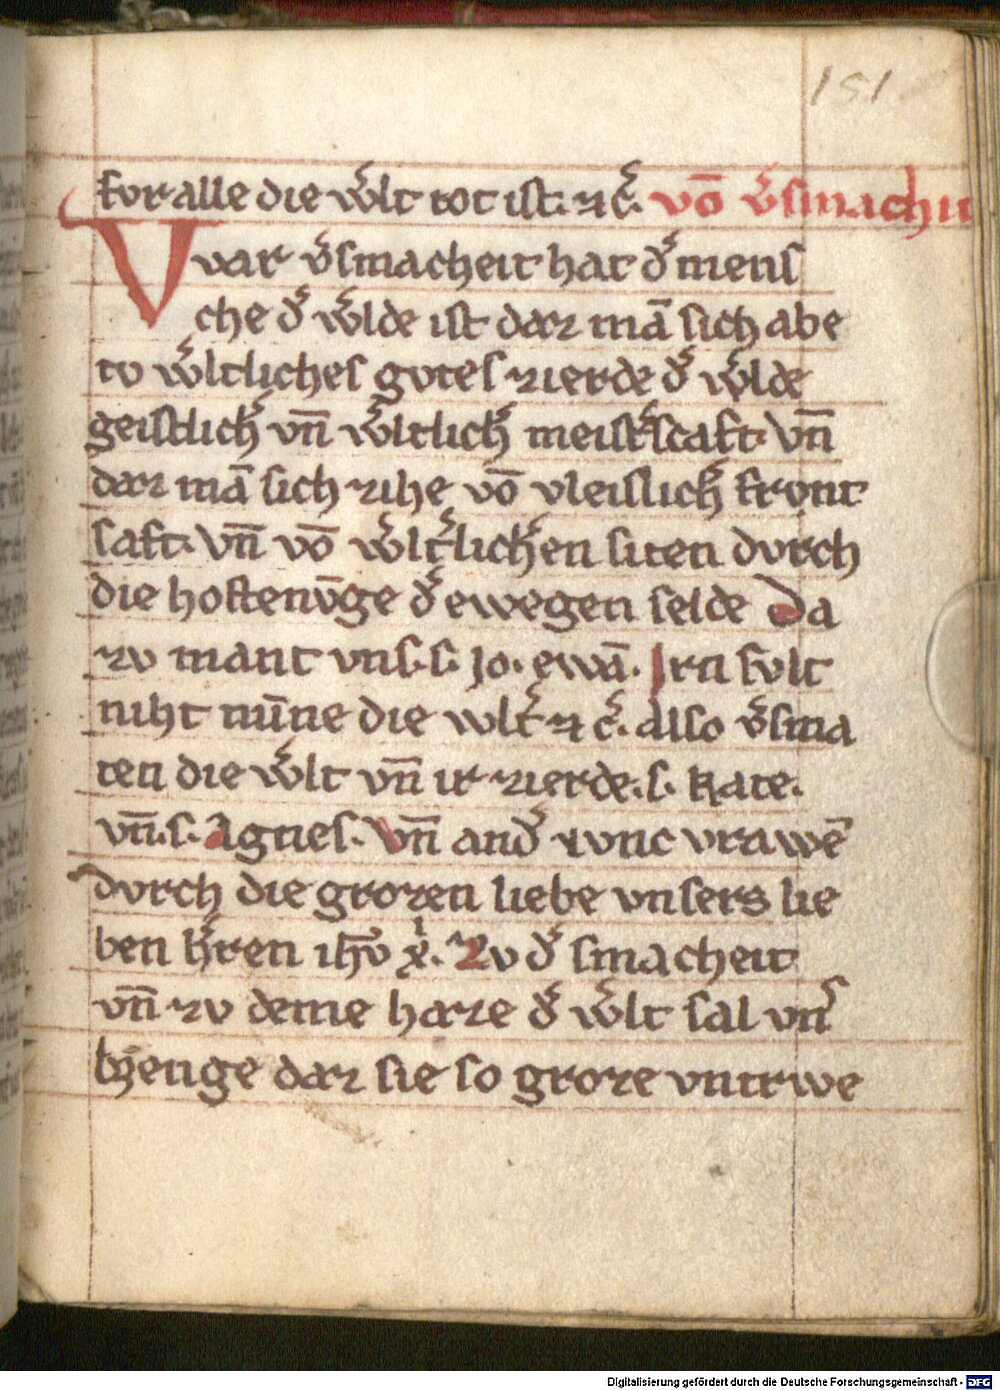 151
fvr alle die w̓lt tot ist. ⁊ c̓. vō v̓smachu
Vvar v̓smacheit hat d̓ mens
che d̓ w̓lde ist daz mā sich abe
tv w̓ltliches gvtes zierde d̓ w̓lde
geistlich̓ vn̄ w̓ltlich̓ meist̓scaft. Vn̄
daz mā sich zihe vō vleislich̓ frvnt
saft. Vn̄ vō w̓lt̓lich̓en siten dvrch
die hoftenv̄ge d̓ ewegen selde Da
zv mant vns. s. Jo. ewā. Irn svlt
niht mīne die wlt̓ ⁊ c̓. Also v̓sma
ten die w̓lt vn̄ ir zierde. s. Kate.
vn̄. s. Agnes. Vn̄ and̓ ivnc vrawē
dvrch die grozen liebe vnsers lie
ben h̓ren ih̄v xͥ. Zv d̓ smacheit
vn̄ zv deme haze d̓ w̓lt sal vn̓s
byenge daz sie so groze vntrwe
Digitalisierung gefördert durch die Deutsche Forschungsgemeinschaft - DFG